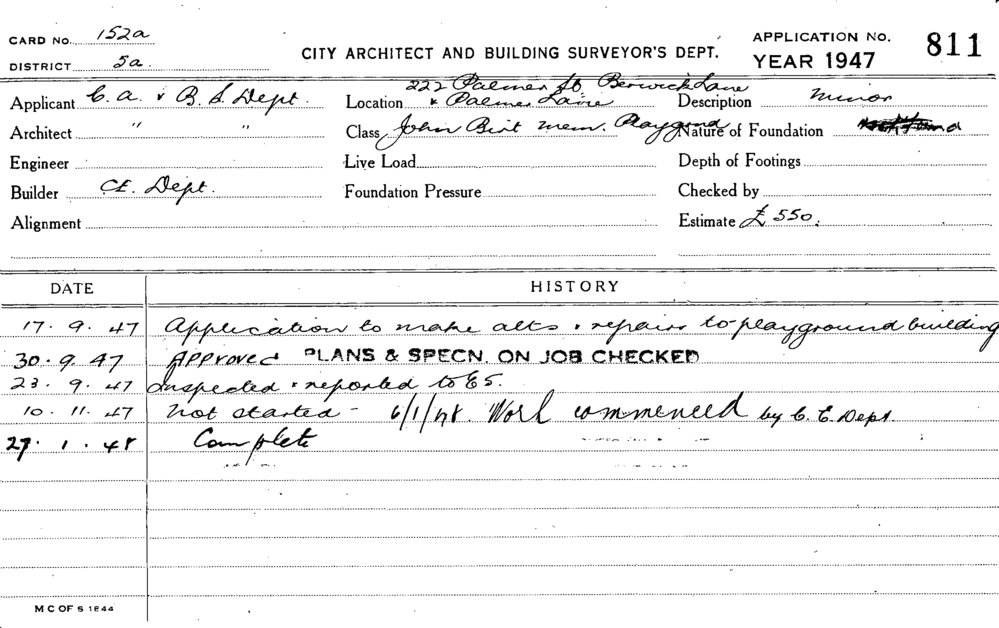 CARD No. 152a
DISTRICT 5a.
CITY ARCHITECT AND BUILDING SURVEYOR'S DEPT.
APPLICATION No. 811
YEAR 1947
Applicant C. A. & B. S. Dept.
Location 222 Palmer St. Berwick Lane
& Palmer Lane
Description Minor
Architect " "
Class John Birt Mem. Playgrnd
Nature of Foundation
Engineer
Live Load
Depth of Footings
Builder C.E. Dept.
Foundation Pressure
Checked by
Alignment
Estimate £550.
DATE HISTORY
17. 9. 47 Application to make alts & repairs to playground building
30. 9. 47 Approved PLANS & SPECN. ON JOB CHECKED
23. 9. 47 Inspected & reported to
10. 11. 47 Not started - 6/1/48. Work commenced by C. E. Dept.
27. 1. 48 Complete
M C OF S 1844